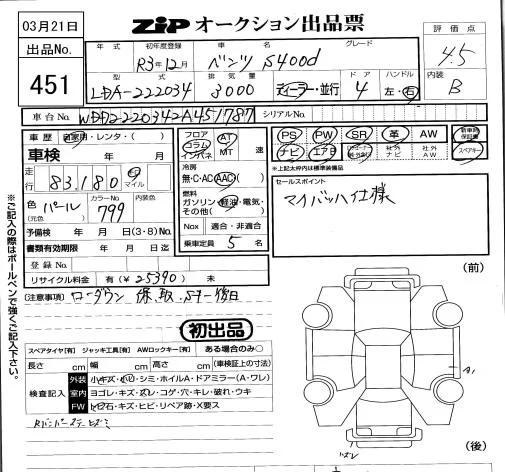 03月21日
ZiP オークション出品票
出品No.
451
評価点
4.5
内装
B
年式 初年度登録 車名 グレード
R3年12月 ベンツ S400d
型式 排気量 ドア ハンドル
LDA-222034 3000 ディーラー・並行 4 左・右
車台No. WDD2220342A451787 シリアルNo.
車歴 自家用・レンタ・( )
車検 年 月
走行 83,180 km マイル
色 (元色) パール カラーNo. 799 内装色
予備検 年 月 日(3・8)No.
書類有効期限 年 月 日迄
登録No.
リサイクル料金 有(¥25390) 未
フロア
コラム
インパネ
AT
MT 速
冷房
無・C・AC・AAC
燃料
ガソリン・軽油・電気・
その他( )
Nox 適合・非適合
乗車定員 5 名
PS PW SR 革 AW 新車時保証書
ナビ エアB 社外ナビ 社外AW スペアキー
※上記太枠内は標準装備品
セールスポイント
マイバッハ仕様
(注意事項) ローダウン 保、取、Sキー後日
初出品
スペアタイヤ[有] ジャッキ工具[有] AWロックキー[有] ある場合のみ○
長さ cm 幅 cm 高さ cm (車検証上の寸法)
検査記入
外装 小キズ・凹・シミ・ホイルA・ドアミラー(A・ワレ)
室内 ヨゴレ・キズ・スレ・コゲ・穴・キレ・破れ・ウキ
FW 飛石・キズ・ヒビ・リペア跡・X要ス
Rバンパーステーヒズミ
※ご記入の際はボールペンで強くご記入下さい。
(前)
A1
(後)